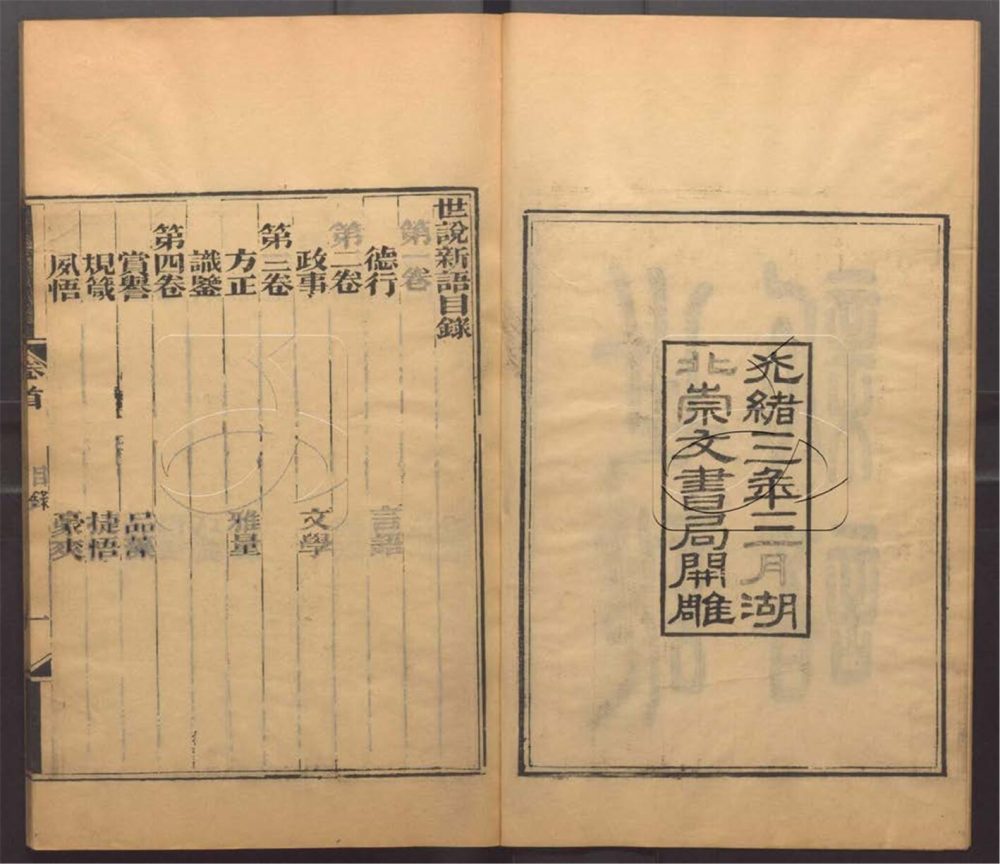 光緒三年三月湖
北崇文書局開雕
世說新語目錄
第一卷
德行 言語
第二卷
政事 文學
第三卷
方正 雅量
識鑒
第四卷
賞譽 品藻
規箴 捷悟
夙悟 豪爽
卷首 目錄 一